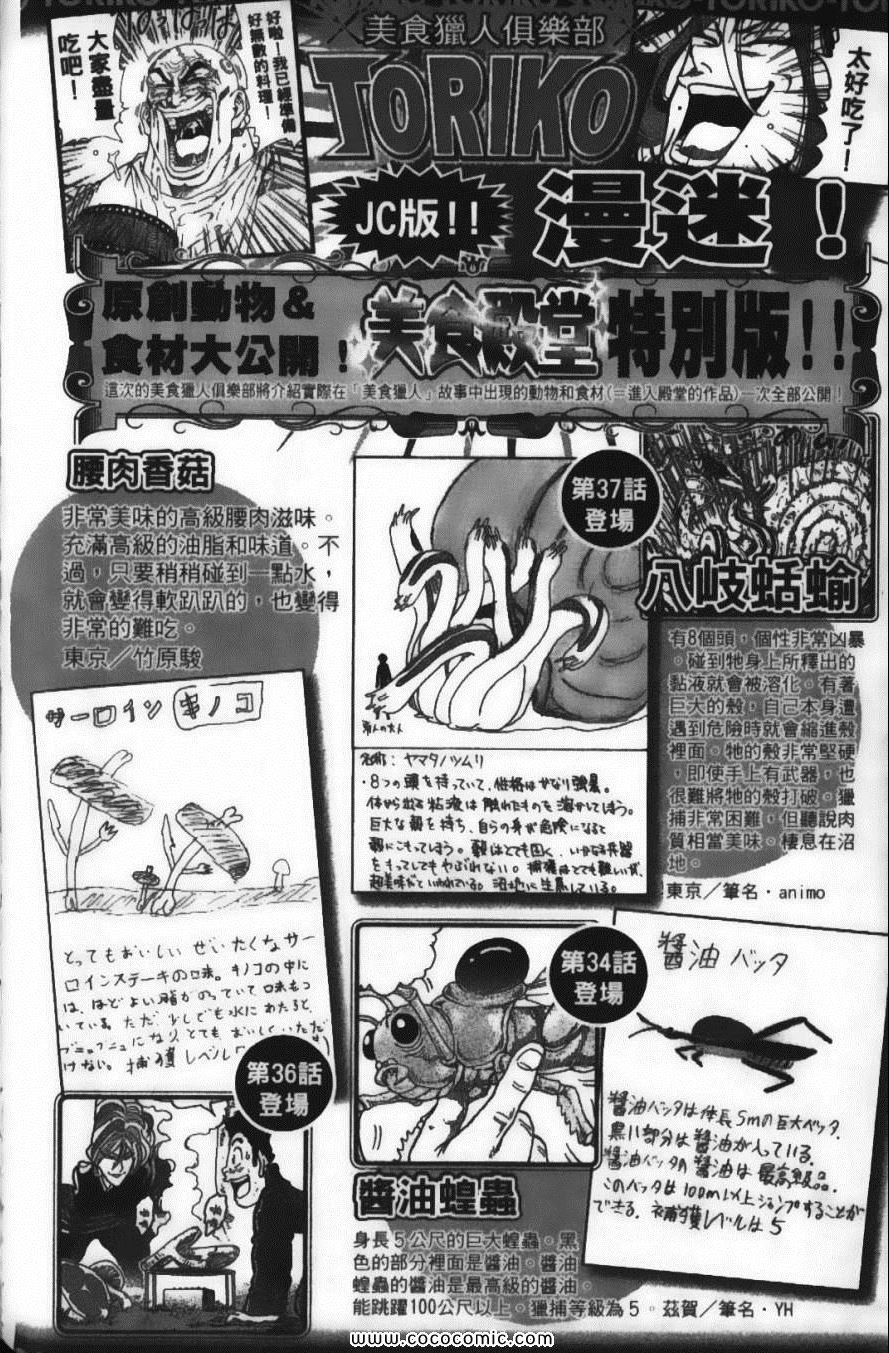 TORIKO-TORIKO-TORIKO
美食獵人俱樂部
TORIKO
好啦！我已經準備
好無數的料理！
大家盡量
吃吧！
太好吃了！
JC版!!
漫迷！
原創動物&
食材大公開！
美食殿堂特別版!!
這次的美食獵人俱樂部將介紹實際在「美食獵人」故事中出現的動物和食材(＝進入殿堂的作品)一次全部公開！
腰肉香菇
非常美味的高級腰肉滋味。
充滿高級的油脂和味道。不
過，只要稍稍碰到一點水，
就會變得軟趴趴的，也變得
非常的難吃。
東京／竹原駿
サーロインキノコ
とってもおいしいぜいたくなサー
ロインステーキの味。キノコの中に
は、ほどよい脂がのっていて味もつ
いている。ただ、少しでも水にあたると
ブニュブニュになり、とてもおいしくいただ
けない。捕獲レベル「
第36話
登場
第37話
登場
八岐蛞蝓
有8個頭，個性非常凶暴
。碰到牠身上所釋出的
黏液就會被溶化。有著
巨大的殼，自己本身遭
遇到危險時就會縮進殼
裡面。牠的殼非常堅硬
，即使手上有武器，也
很難將牠的殼打破。獵
捕非常困難，但聽說肉
質相當美味。棲息在沼
地。
東京／筆名・animo
名前：ヤマタノツムリ
・8つの頭を持っていて、性格はかなり強暴。
体から出る粘液は触れたものを溶かしてしまう。
巨大な殻を持ち、自らの身が危険になると
殻にこもってしまう。殻はとても固く、いかなる兵器
をもってしてもやぶれない。捕獲はとても難しいが、
超美味だといわれている。沼地に生息している。
第34話
登場
醬油バッタ
醬油バッタは体長5mの巨大バッタ.
黒い部分は醬油が入っている.
醬油バッタの醬油は最高級品.
このバッタは100m以上ジャンプすることが
できる. 補獲レベルは5
醬油蝗蟲
身長5公尺的巨大蝗蟲。黑
色的部分裡面是醬油。醬油
蝗蟲的醬油是最高級的醬油。
能跳躍100公尺以上。獵捕等級為5。茲賀／筆名・YH
www.cococomic.com